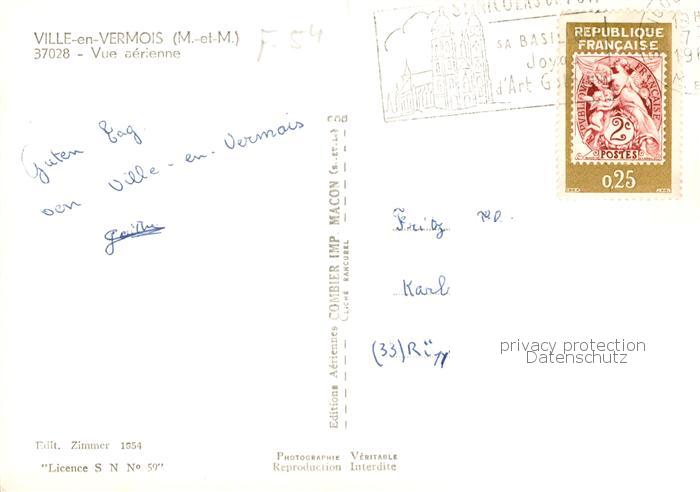 VILLE-en-VERMOIS (M.-et-M.)
37028 - Vue aérienne
F. 54
SA BASIL
Joya
d'Art G
RÉPUBLIQUE
FRANÇAISE
2c
POSTES
0,25
Guten Tag
von Ville-en-Vermois
Editions Aériennes COMBIER IMP. MACON (S.-et-L.)
CLICHÉ RANCUREL
Fritz
Karl
(33) Rü
privacy protection
Datenschutz
Edit. Zimmer 1654
"Licence S N No 59"
PHOTOGRAPHIE VÉRITABLE
Reproduction Interdite